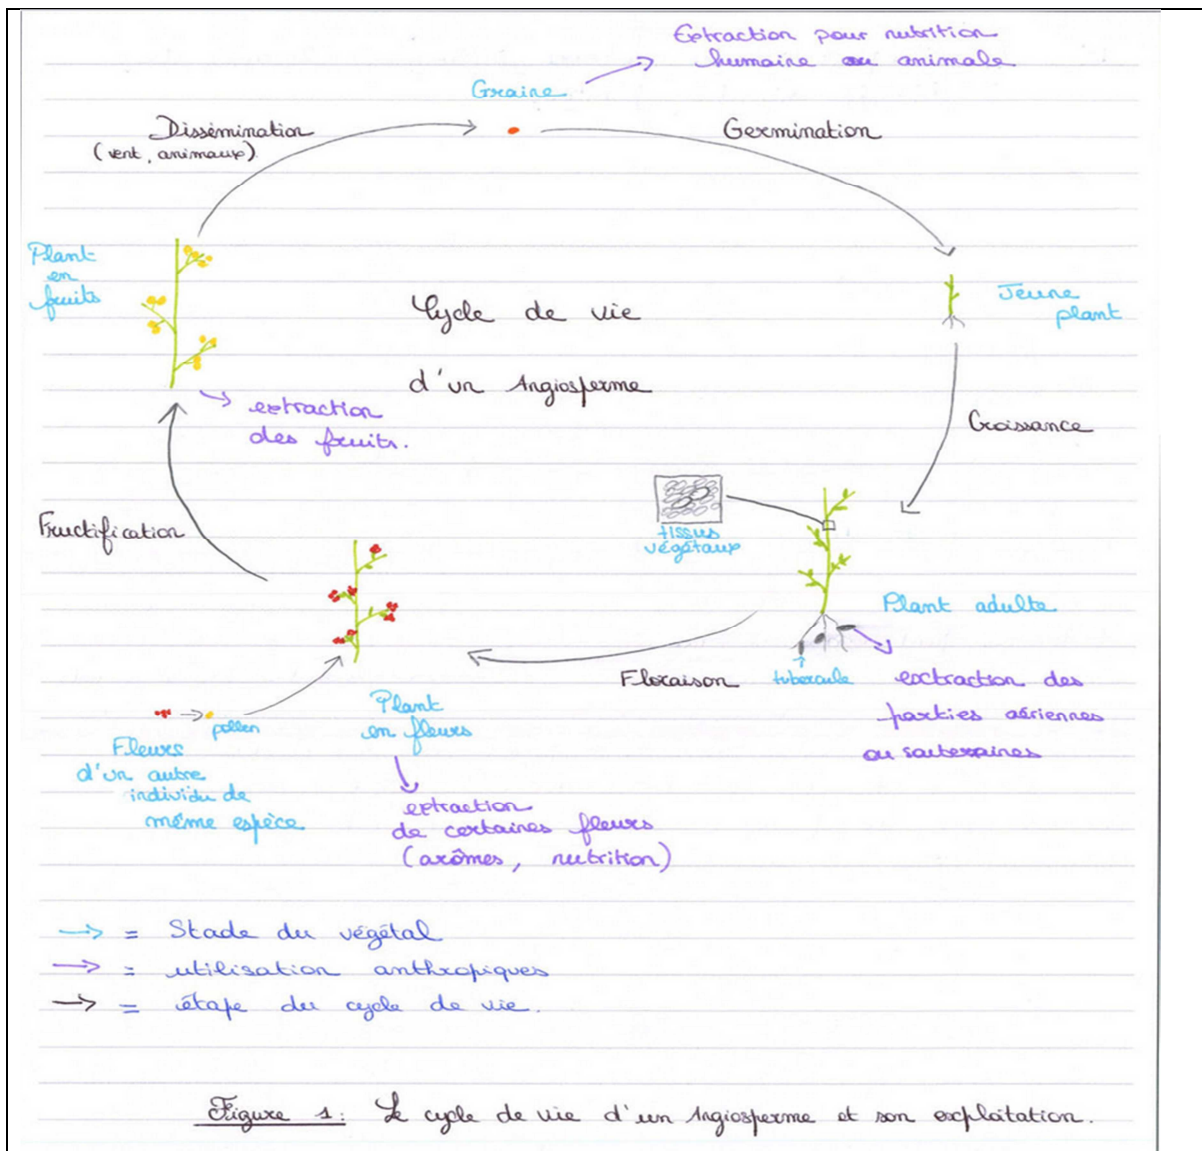 Extraction pour nutrition
humaine ou animale
Graine
Dissémination
(vent, animaux)
Germination
Plant
en
fruits
Jeune
plant
Cycle de vie
d'un Angiosperme
extraction
des fruits.
Croissance
Fructification
tissus
végétaux
Plant adulte
Floraison
tubercule
extraction des
parties aériennes
ou souterraines
pollen
Fleurs
d'un autre
individu de
même espèce
Plant
en fleurs
extraction
de certaines fleurs
(arômes, nutrition)
= Stade du végétal
= utilisation anthropiques
= étape du cycle de vie.
Figure 1: Le cycle de vie d'un Angiosperme et son exploitation.